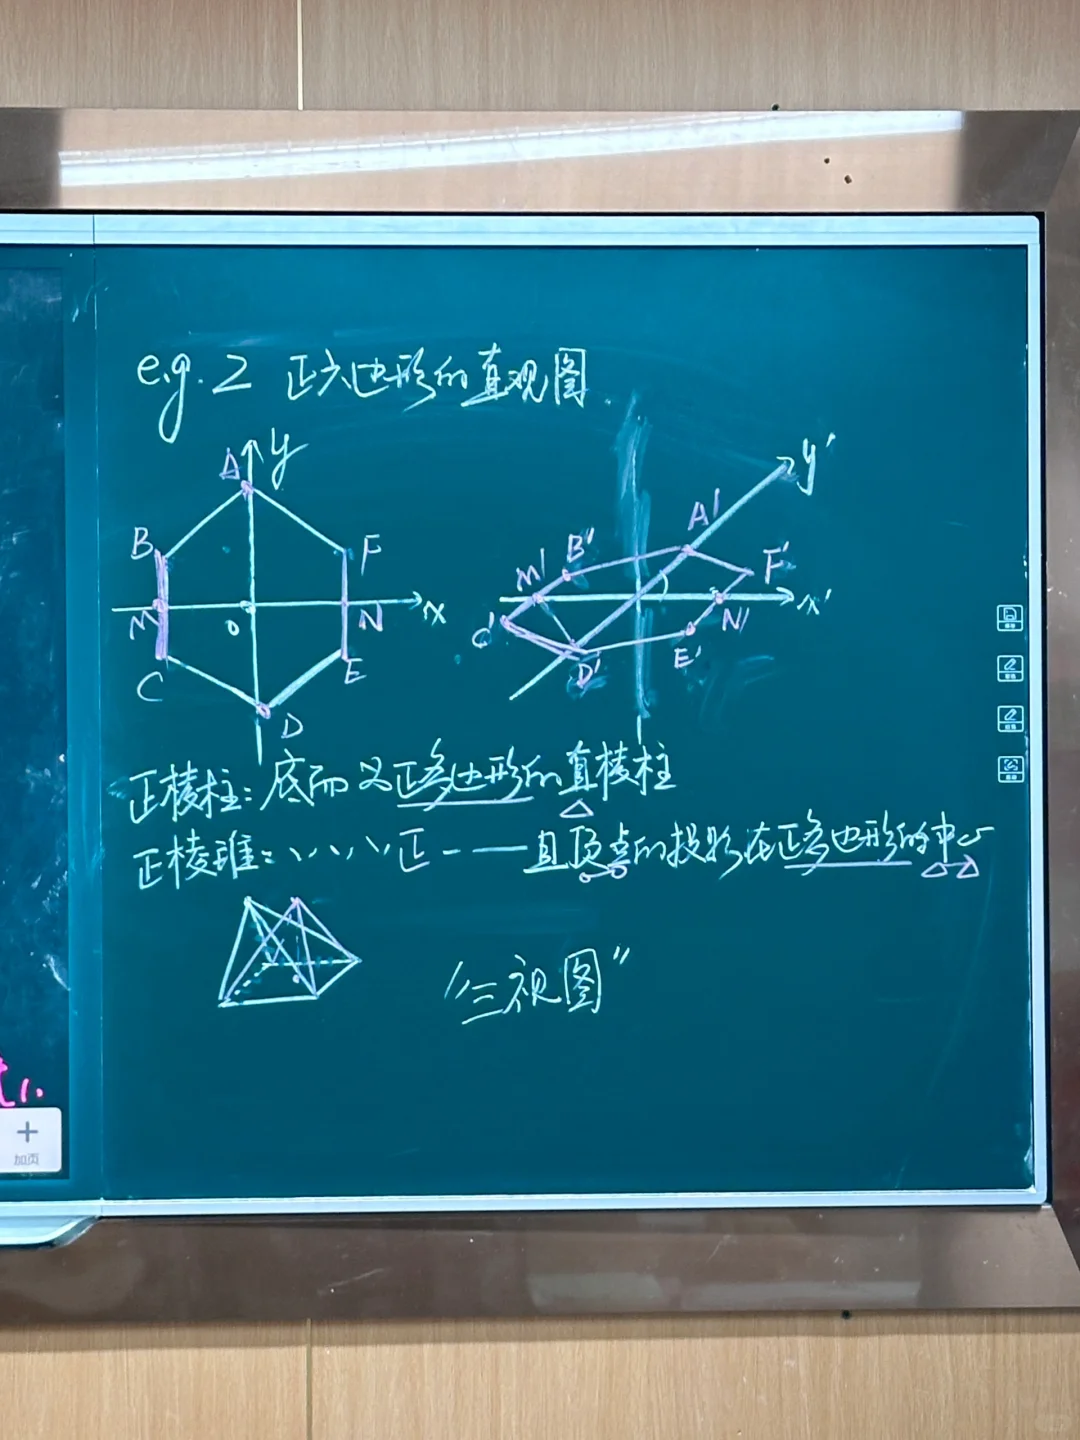 e.g.2 正六边形的直观图.
y
A
B
F
M
O
N
x
C
E
D
y'
A'
B'
F'
M'
x'
C'
N'
D'
E'
正棱柱: 底面又正多边形的直棱柱
正棱锥: 、、、、正－－—且顶点的投影在正多边形的中心
"三视图"
+
加页